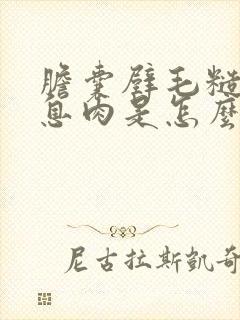 膽囊壁毛糙
息肉是怎麼
尼古拉斯凱奇